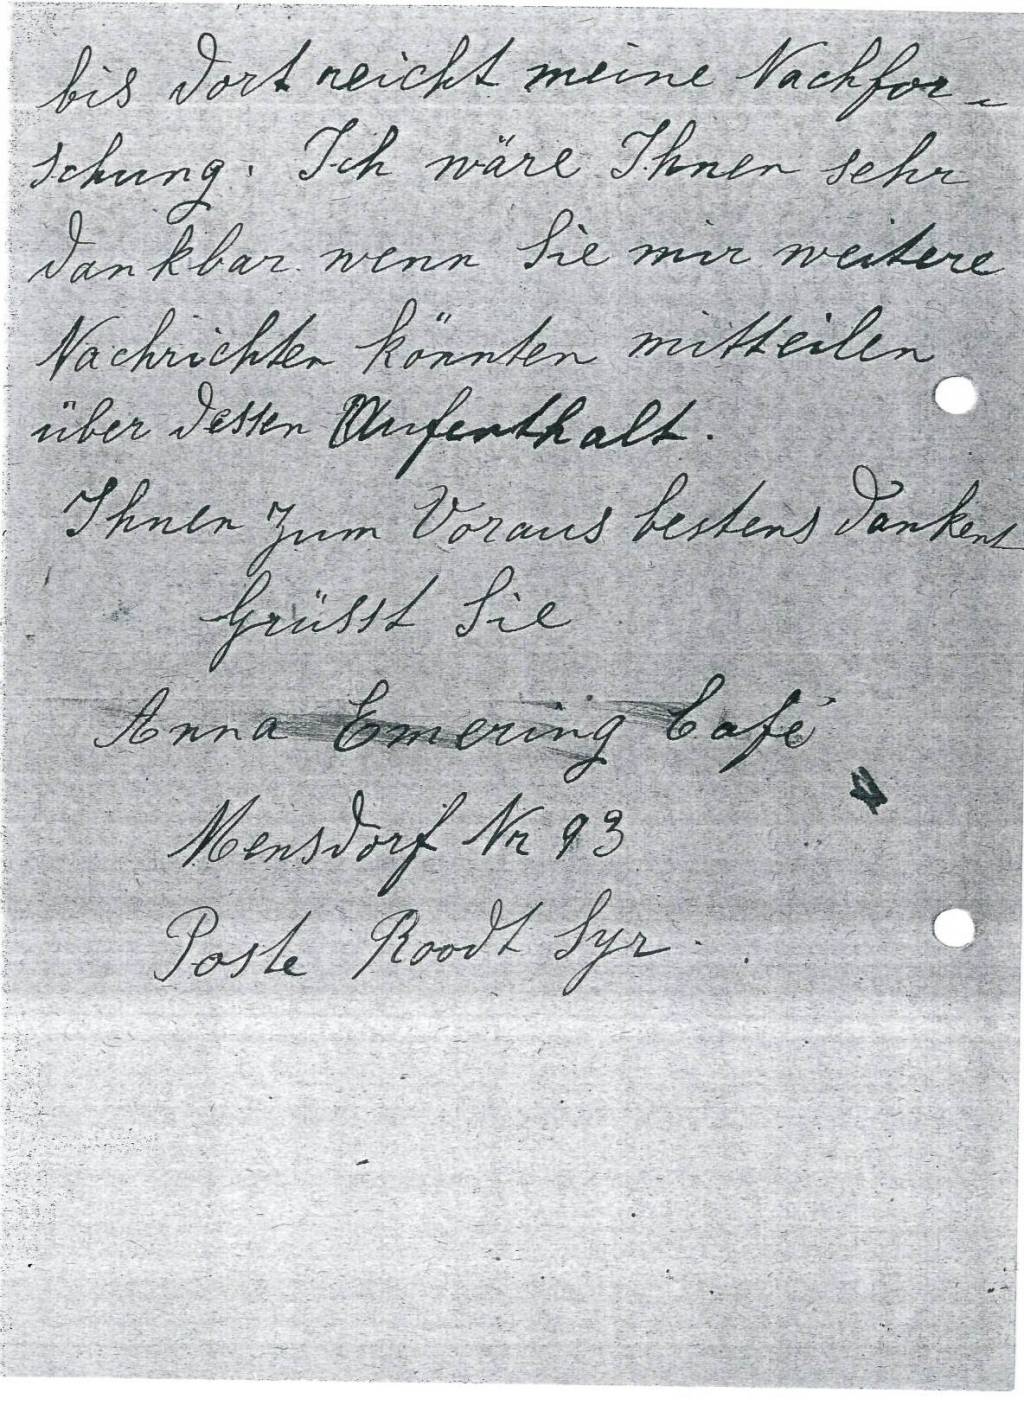 bis dort reicht meine Nachfor-
schung. Ich wäre Ihnen sehr
dankbar wenn Sie mir weitere
Nachrichten könnten mitteilen
über dessen Aufenthalt.
Ihnen zum Voraus bestens dankent
Grüsst Sie
Anna Emering Café
Mensdorf Nr 93
Poste Roodt Syr.